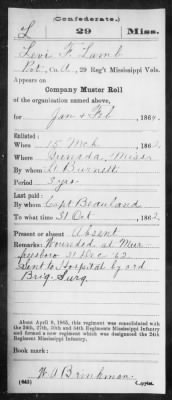 (Confederate.)
L 29 Miss.
Levi F. Lamb
Pvt, Co. A, 29 Reg't Mississippi Vols.
Appears on
Company Muster Roll
of the organization named above,
for Jan & Feb, 1864.
Enlisted:
When 15 Mch, 1862.
Where Grenada, Miss
By whom Lt Burnett
Period 3 yrs
Last paid:
By whom Capt
To what time 31 Oct, 1862.
Present or absent Absent
Remarks: Wounded at Mur
freesboro 31 Dec '62
Sent to Hospital by ord
Brig. Surg.
About April 9, 1865, this regiment was consolidated with
the 24th, 27th, 30th and 34th Regiments Mississippi Infantry
and formed a new regiment which was designated the 24th
Regiment Mississippi Infantry.
Book mark:
(642) Copyist.